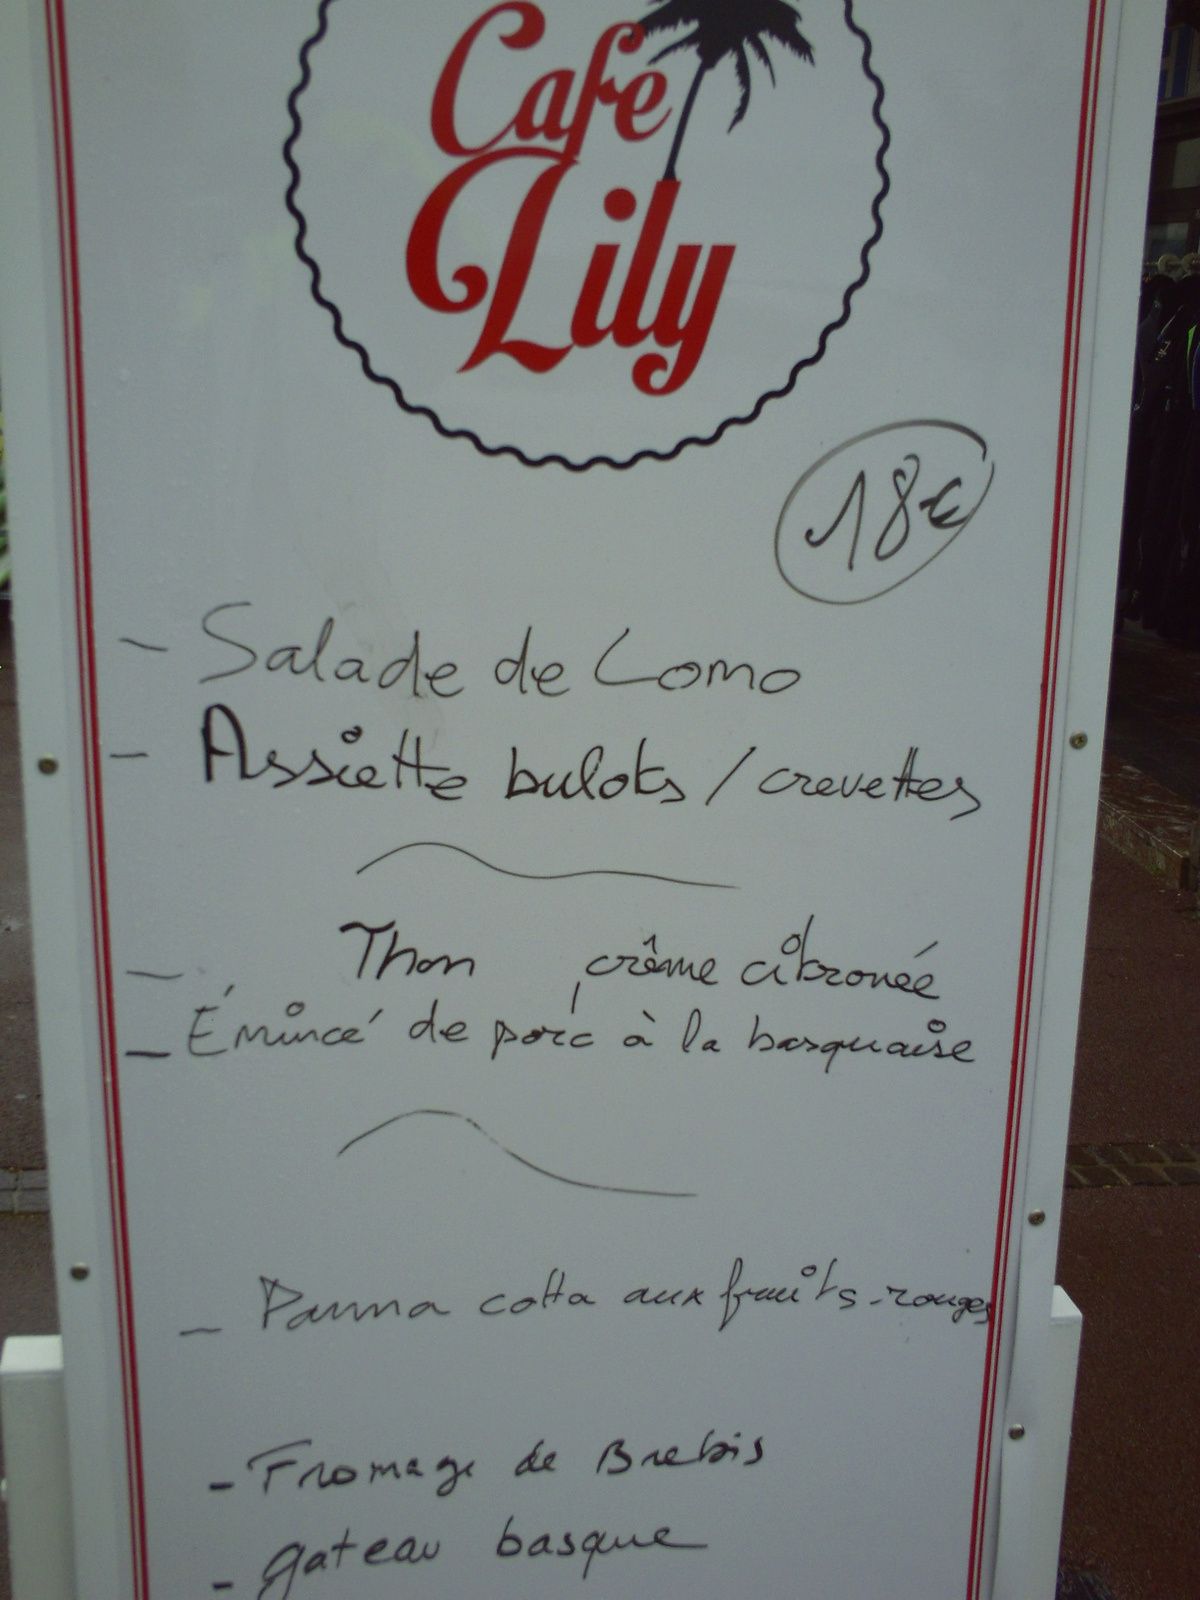 Café
Lily
18€
- Salade de Lomo
- Assiette bulots / crevettes
- Thon, crême citronée
- Émincé de porc à la basquaise
- Panna cotta aux fruits-rouges
- Fromage de Brebis
- gateau basque